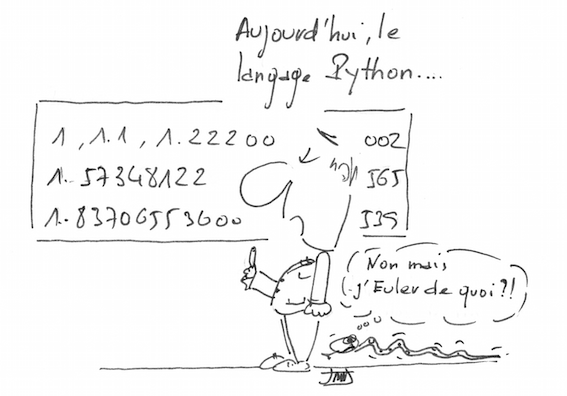 Aujourd'hui, le
langage Python....
1, 1.1, 1.22200 002
1.57348122 565
1.83706553600 539
Non mais
j'Euler de quoi?!